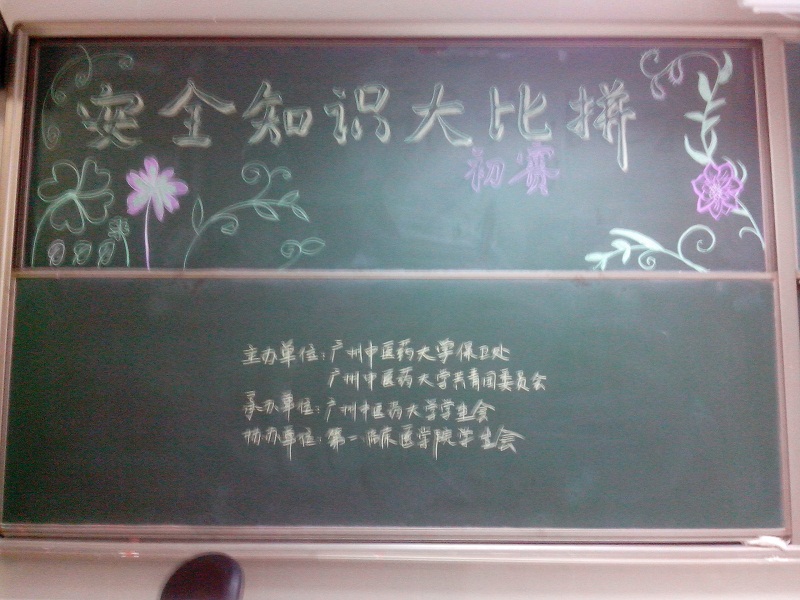 安全知识大比拼
初赛
主办单位：广州中医药大学保卫处
广州中医药大学共青团委员会
承办单位：广州中医药大学学生会
协办单位：第一临床医学院学生会